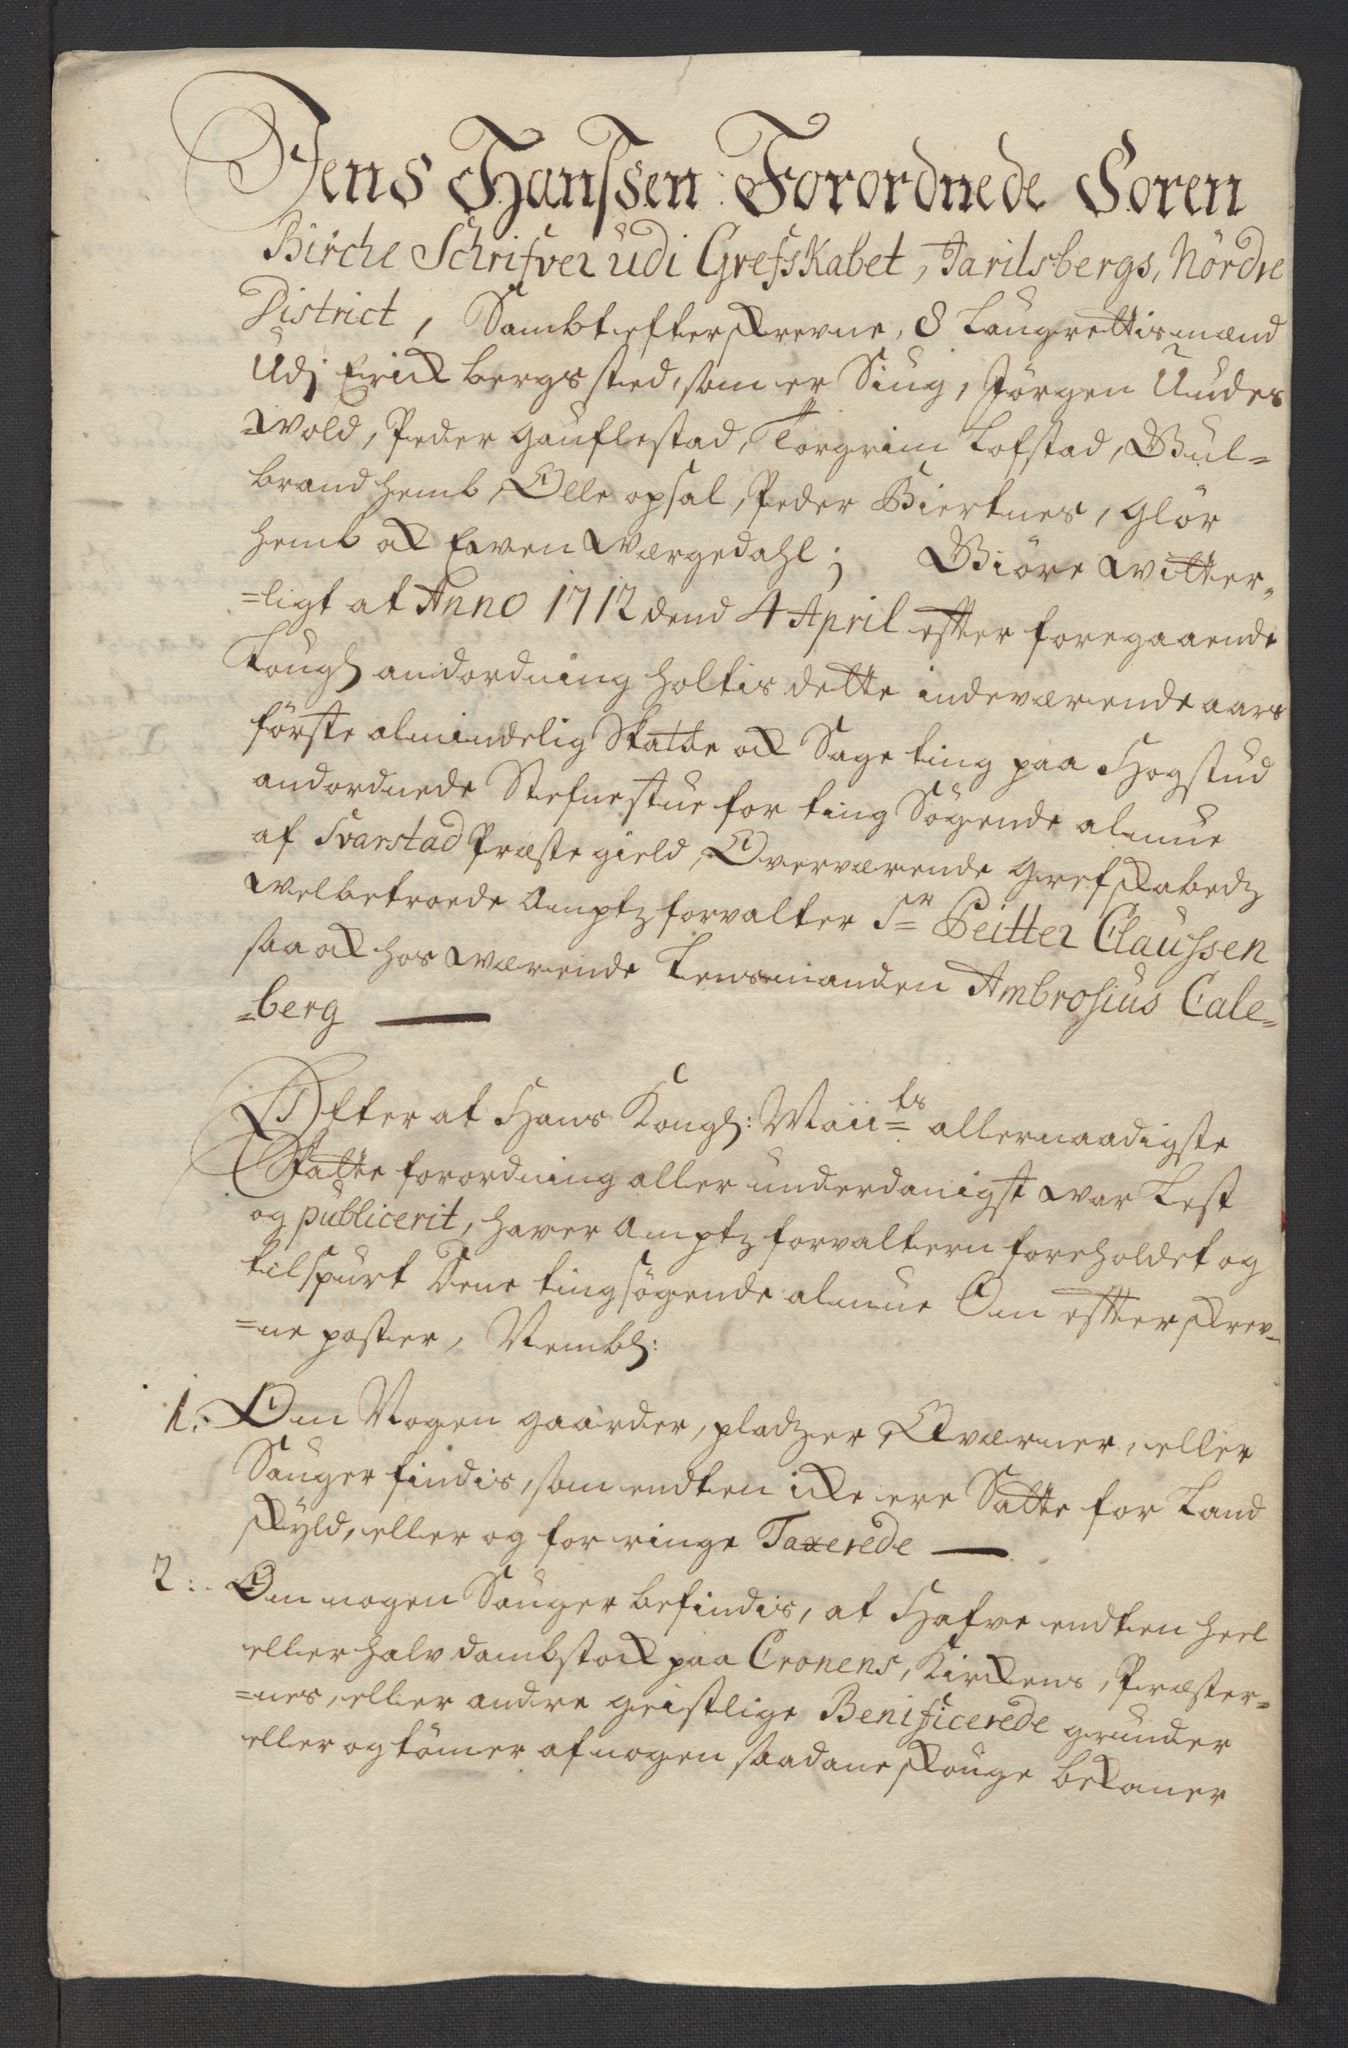 Jens Hanssen Forordnede Soren
Birche Schrifver udi Grefskabet, Jarilsbergs, Nördre
District, Sambt efterskrevne, 8 Laugrettismænd
Udj Erick bergs sted, som er Siug, Jörgen Uudes
=wold, Peder gauflestad, Torgrim Lofstad, Gul=
brand hemb, Olle opsal, Peder Biertnes, Glör
hemb och Even Wærgedahl; Giöre witter,,
=ligt at Anno 1712 dend 4 April efter foregaaende
Lougl andordning holtis dette indeværende aars
förste almindelig Skatte och Sage ting paa Hogstud
andordnede Stefnestue for ting Sögende almue
af Svarstad Præste gield, Overværende grefskabedz
welbetroede Amptz forvalter Sr Peitter Claussen
saa och hos wærende Lensmanden Ambrosius Cale=
=berg
Efter at Hans Kongl: Maiits allernaadigste
Skatte forordning aller underdanigst war Lest
og publicerit, haver Amptz forvaltern foreholdet og
tilspurt Dene tingsögende almue Om efterskrev=
=ne poster, Nembl:
1. Om Nogen gaarder, pladzer, Qværner, eller
Sauger findis, som endten icke ere Satte for Land
skyld, eller og for ringe Taxerede
2. Om nogen Sauger befindis, at Hafve endten heel
eller halv dambstock paa Cronens, Kirckens, Præster=
=nes, eller andre geistlige Benificerede grunder
eller og tömer af nogen saadane skouge bekaner